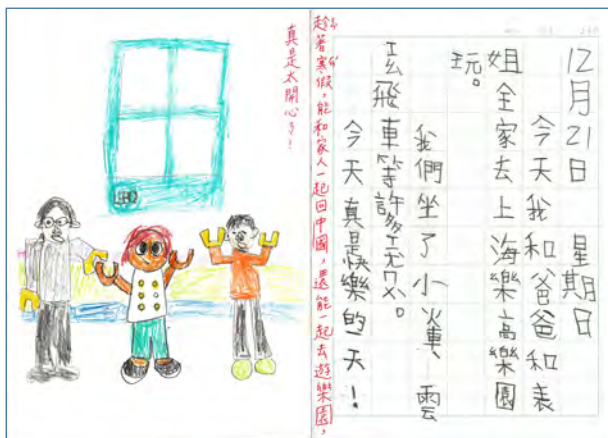 12月21日 星期日
今天我和爸爸和表
姐全家去上海樂高樂園
玩。
我們坐了小火車、雲
飛車等許多。
今天真是快樂的一天！
趁著寒假，能和家人一起回中國，還能一起去遊樂園，
真是太開心了！